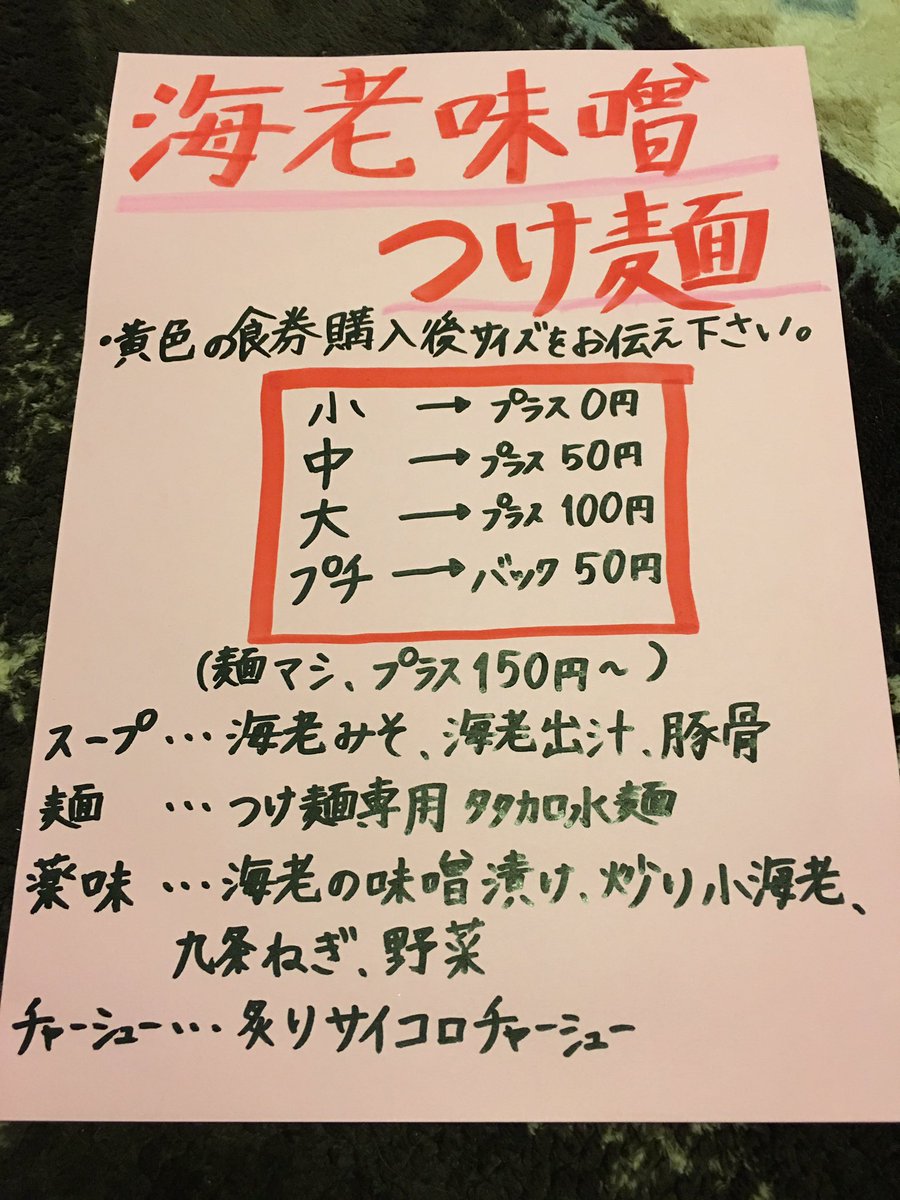 海老味噌
つけ麺
・黄色の食券購入後サイズをお伝え下さい。
小 → プラス 0円
中 → プラス 50円
大 → プラス 100円
プチ → バック 50円
(麺マシ、プラス150円〜)
スープ … 海老みそ、海老出汁、豚骨
麺 … つけ麺専用 タタカロ水麺
薬味 … 海老の味噌漬け、炒り小海老、
九条ねぎ、野菜
チャーシュー … 炙りサイコロチャーシュー